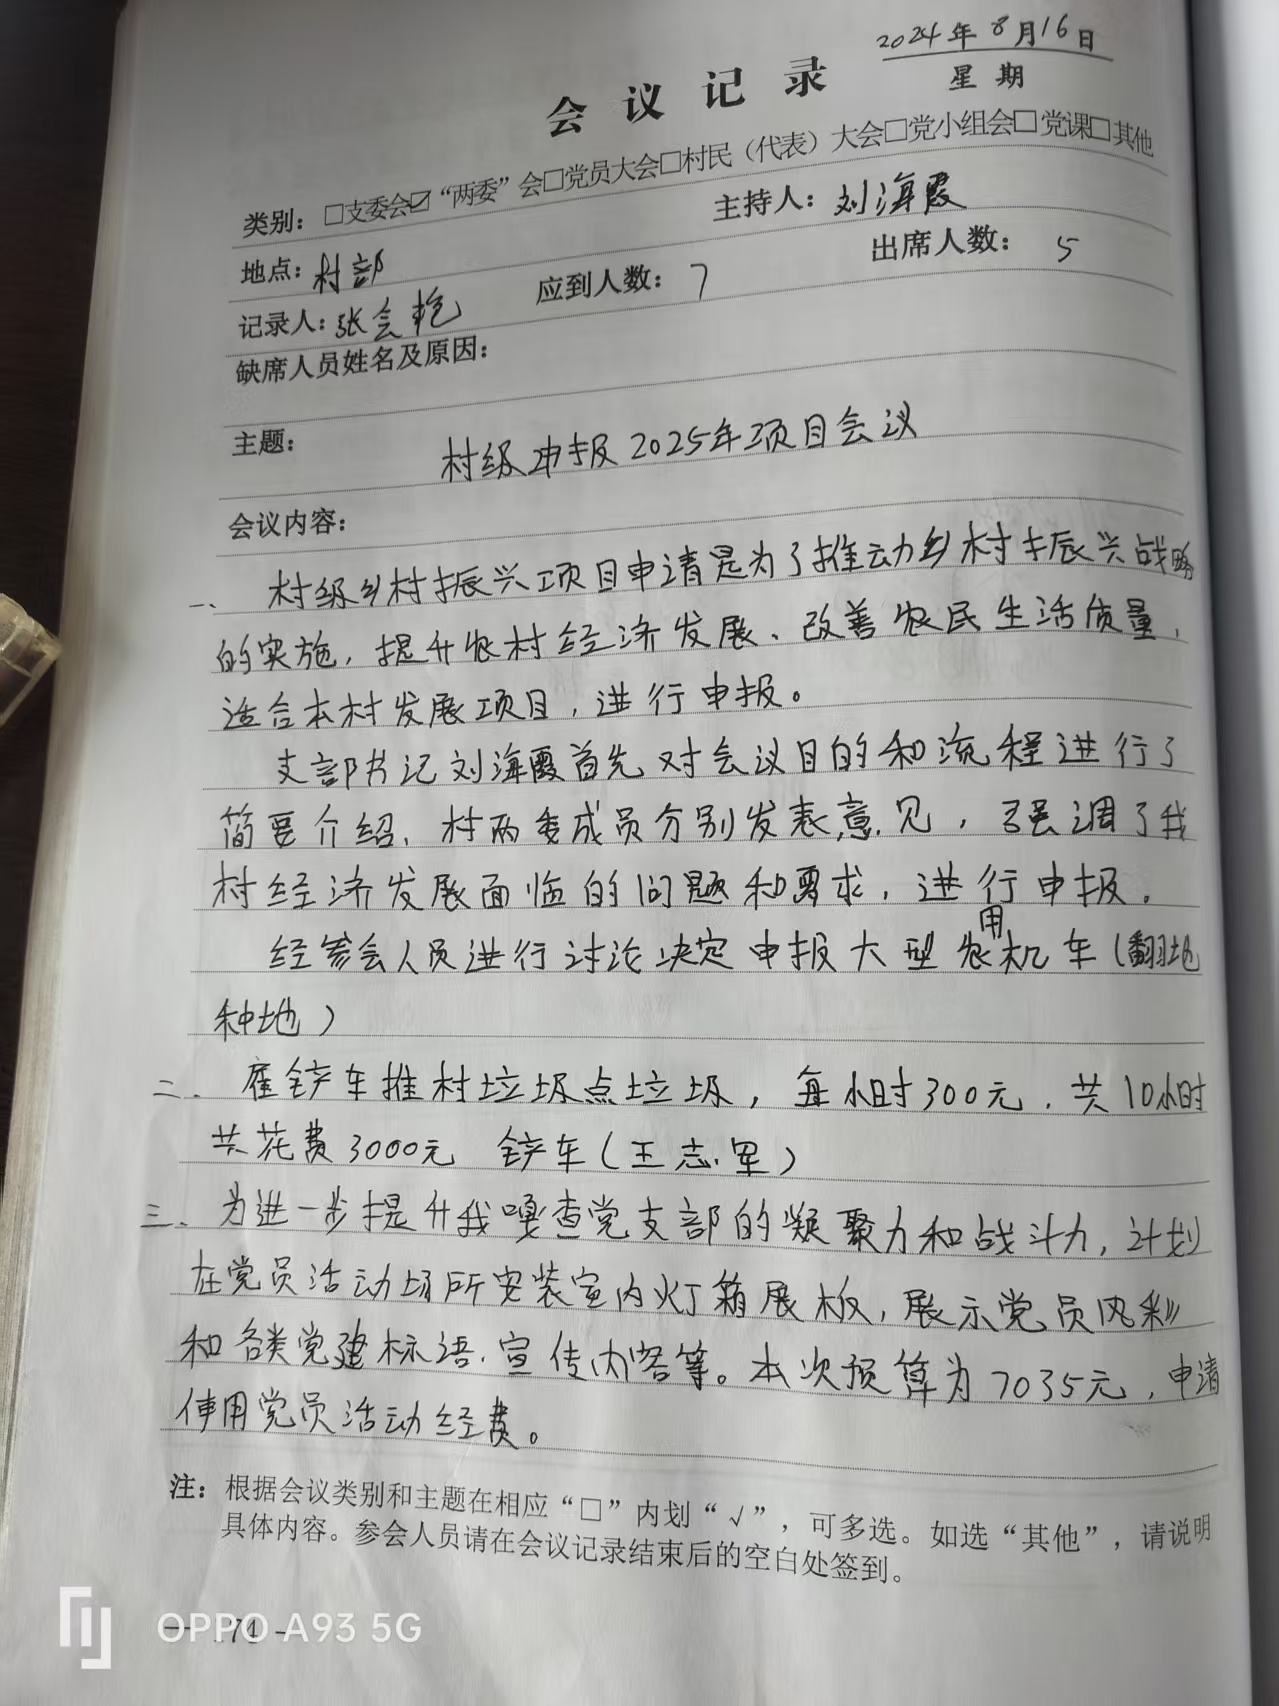 2024年8月16日
会议记录
星期
类别：□支委会☑“两委”会□党员大会□村民（代表）大会□党小组会□党课□其他
地点：村部 主持人：刘海霞
记录人：张会艳 应到人数：7 出席人数：5
缺席人员姓名及原因：
主题： 村级申报2025年项目会议
会议内容：
一、村级乡村振兴项目申请是为了推动乡村振兴战略
的实施，提升农村经济发展、改善农民生活质量，
适合本村发展项目，进行申报。
支部书记刘海霞首先对会议目的和流程进行了
简要介绍、村两委成员分别发表意见，强调了我
村经济发展面临的问题和要求，进行申报。
经参会人员进行讨论决定申报大型农用机车（翻地
种地）
二、雇铲车推村垃圾点垃圾，每小时300元．共10小时
共花费3000元 铲车（王志军）
三、为进一步提升我嘎查党支部的凝聚力和战斗力，计划
在党员活动场所安装室内灯箱展板，展示党员风彩
和各类党建标语．宣传内容等。本次预算为7035元，申请
使用党员活动经费。
注：根据会议类别和主题在相应“□”内划“√”，可多选。如选“其他”，请说明
具体内容。参会人员请在会议记录结束后的空白处签到。
OPPO A93 5G